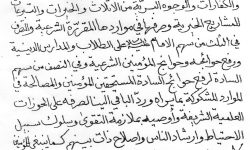 والكفارات والوجوه السرية من الاثلاث والخيرات والتبرعا
للمشاريع الخيرية وصرفها في مواردها المقررة الشرعية والتصرف
في الثلث من سهم الامام على الطلاب والمدارس الدينية
ورفع حوائج المؤمنين الشرعية وفي النصف من سهم
السادة لرفع حوائج السادة المستحقين المؤمنين والمصالحة في
الموارد المشكوكة بما يراه وردّ الباقي الينا لصرفه على الحوزات
العلمية الشريفة وأوصيه بملازمة التقوى وسلوك سبيل
الاحتياط وارشاد الناس واصلاح ذات بينهم كما ينبغي للمؤمنين